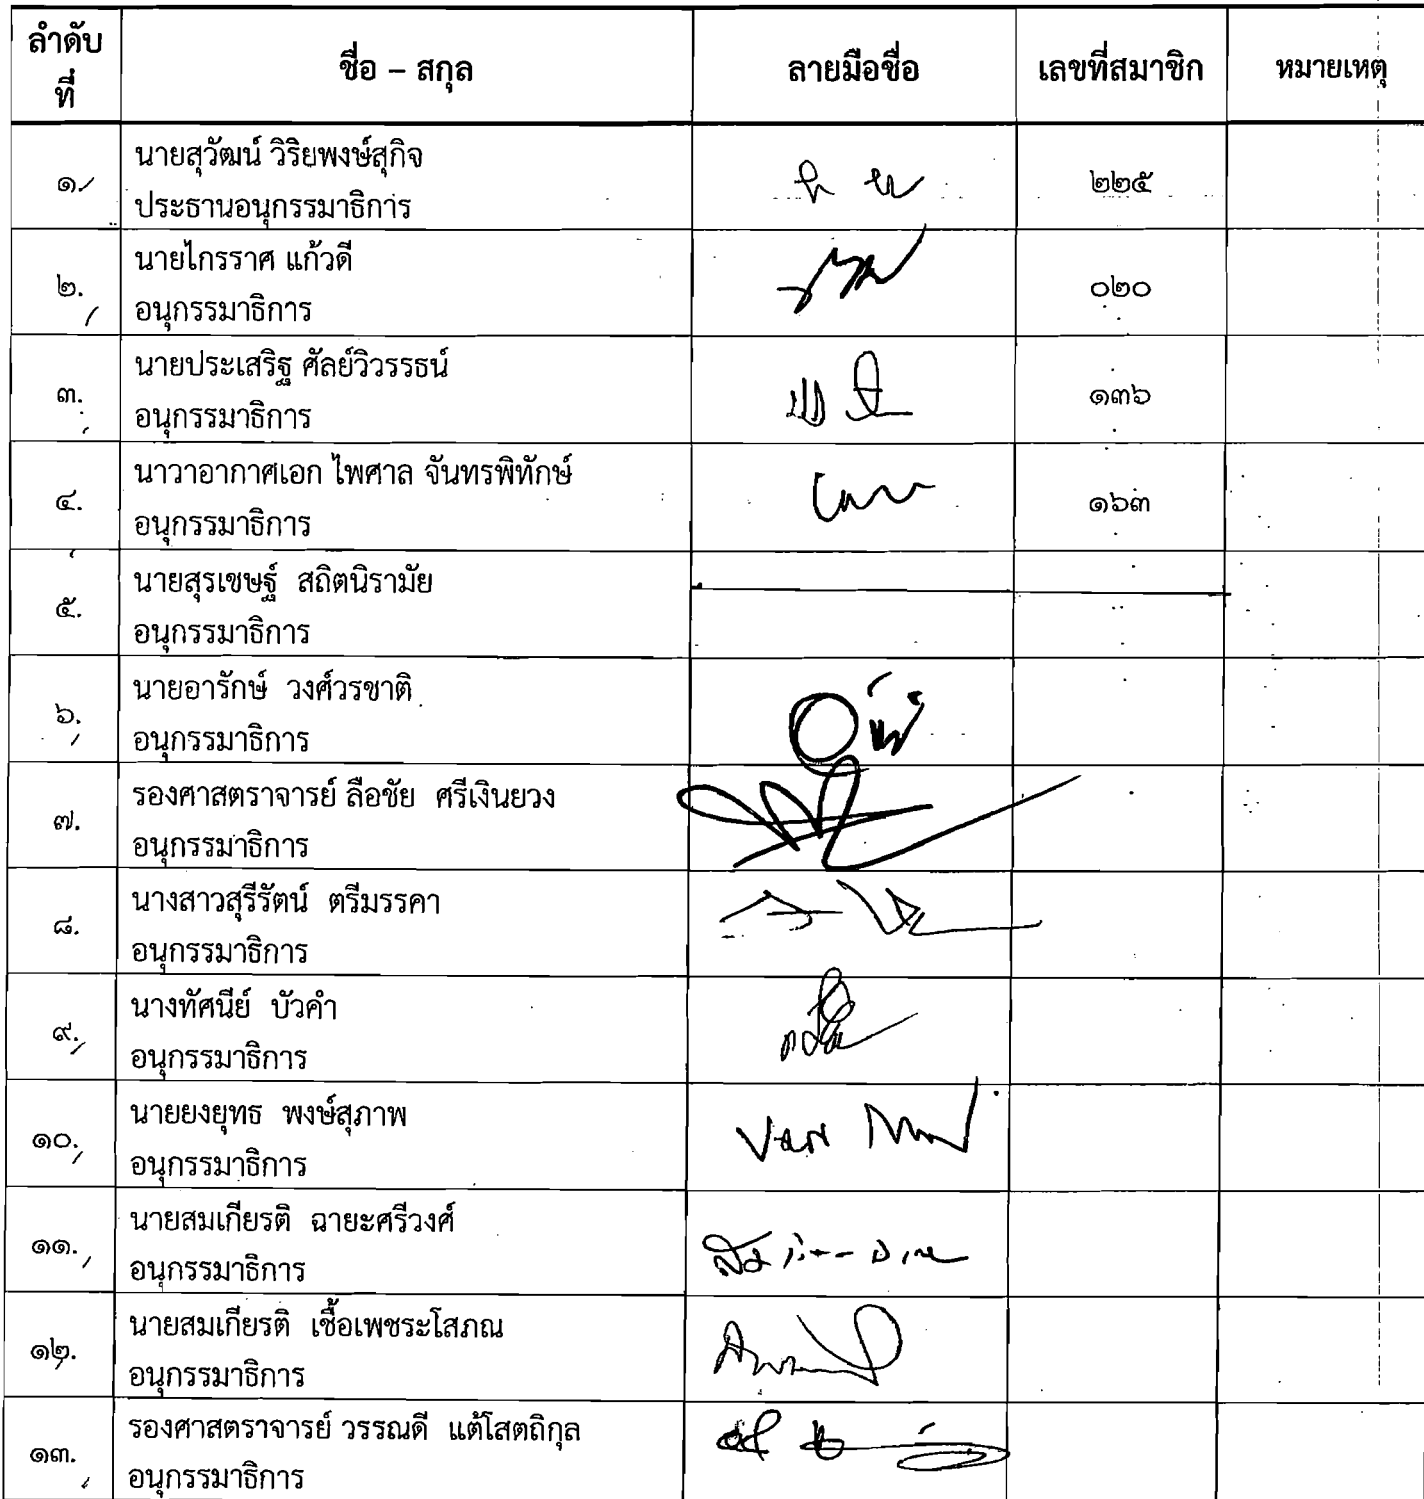 ลำดับที่ ชื่อ – สกุล ลายมือชื่อ เลขที่สมาชิก หมายเหตุ
๑. นายสุวัฒน์ วิริยพงษ์สุกิจ ๒๒๕
ประธานอนุกรรมาธิการ
๒. นายไกรราศ แก้วดี ๐๒๐
อนุกรรมาธิการ
๓. นายประเสริฐ ศัลย์วิวรรธน์ ๑๓๖
อนุกรรมาธิการ
๔. นาวาอากาศเอก ไพศาล จันทรพิทักษ์ ๑๖๓
อนุกรรมาธิการ
๕. นายสุรเชษฐ์ สถิตนิรามัย
อนุกรรมาธิการ
๖. นายอารักษ์ วงศ์วรชาติ
อนุกรรมาธิการ
๗. รองศาสตราจารย์ ลือชัย ศรีเงินยวง
อนุกรรมาธิการ
๘. นางสาวสุรีรัตน์ ตรีมรรคา
อนุกรรมาธิการ
๙. นางทัศนีย์ บัวคำ
อนุกรรมาธิการ
๑๐. นายยงยุทธ พงษ์สุภาพ
อนุกรรมาธิการ
๑๑. นายสมเกียรติ ฉายะศรีวงศ์
อนุกรรมาธิการ
๑๒. นายสมเกียรติ เชื้อเพชระโสภณ
อนุกรรมาธิการ
๑๓. รองศาสตราจารย์ วรรณดี แต้โสตถิกุล
อนุกรรมาธิการ